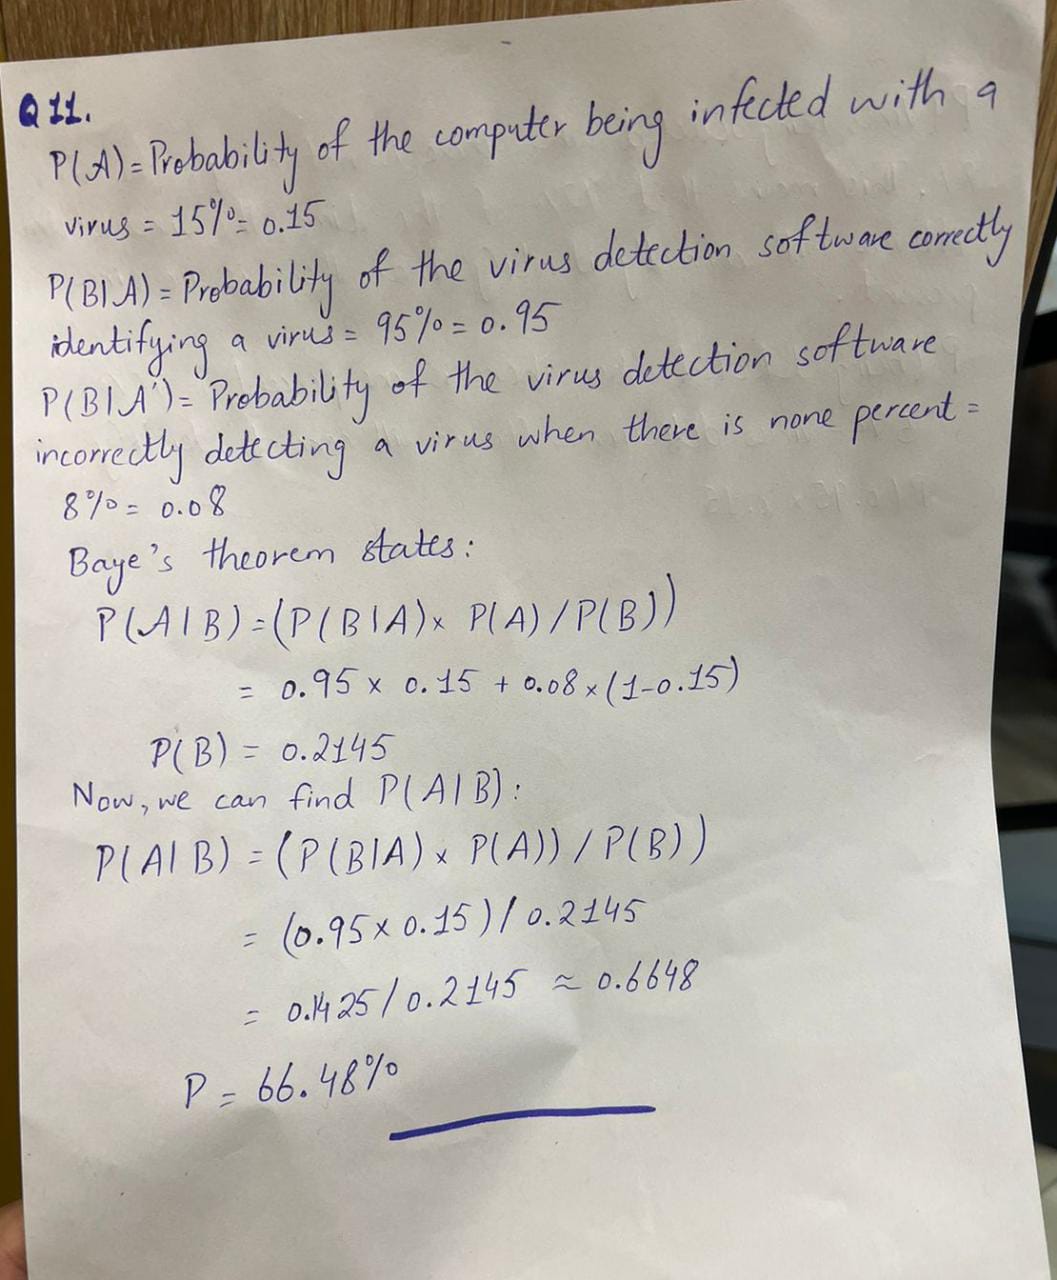 Q 11.
P(A) = Probability of the computer being infected with a
virus = 15% = 0.15
P(B|A) = Probability of the virus detection software correctly
identifying a virus = 95% = 0.95
P(B|A') = Probability of the virus detection software
incorrectly detecting a virus when there is none percent =
8% = 0.08
Baye's theorem states:
P(A|B) = (P(B|A) × P(A) / P(B))
= 0.95 × 0.15 + 0.08 × (1-0.15)
P(B) = 0.2145
Now, we can find P(A|B):
P(A|B) = (P(B|A) × P(A)) / P(B))
= (0.95 × 0.15) / 0.2145
= 0.1425 / 0.2145 ≈ 0.6648
P = 66.48%